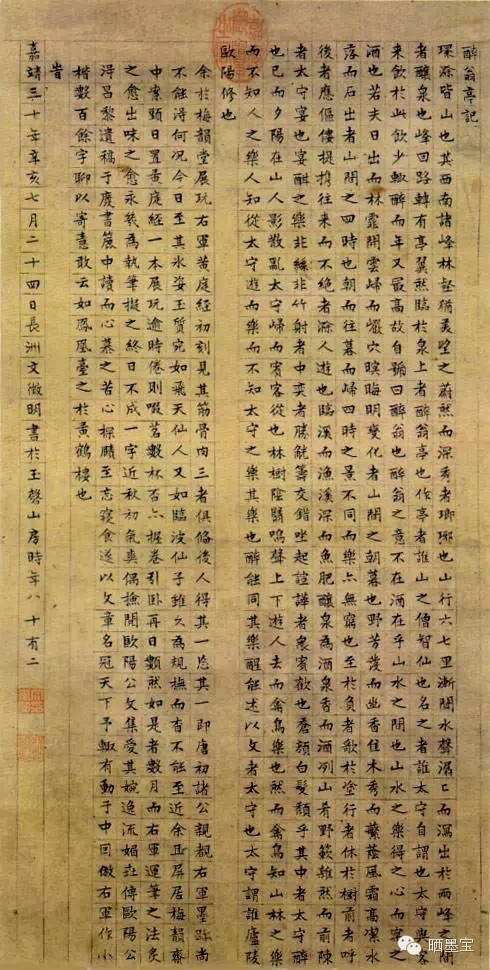 醉翁亭記
環滁皆山也其西南諸峰林壑猶美望之蔚然而深秀者瑯琊也山行六七里漸聞水聲潺〻而瀉出於两峰之間
者釀泉也峰回路轉有亭翼然臨於泉上者醉翁亭也作亭者誰山之僧智仙也名之者誰太守自謂也太守與客
來飲於此飲少輒醉而年又最高故自號曰醉翁也醉翁之意不在酒在乎山水之間也山水之樂得之心而寓之
酒也若夫日出而林霏開雲歸而巖穴暝晦明變化者山間之朝暮也野芳發而幽香佳木秀而蘩蔭風霜高潔水
落而石出者山間之四時也朝而往暮而歸四時之景不同而樂亦無窮也至於負者歌於塗行者休於樹前者呼
後者應傴僂提攜往來而不絕者滁人遊也臨溪而漁溪深而魚肥釀泉為酒泉香而酒冽山肴野蔌雜然而前陳
者太守宴也宴酣之樂非絲非竹射者中奕者勝觥籌交錯坐起諠譁者衆賓歡也蒼顏白髮頹乎其中者太守醉
也已而夕陽在山人影散亂太守歸而賓客從也林樹陰翳鳴聲上下遊人去而禽鳥樂也然而禽鳥知山林之樂
而不知人之樂人知從太守遊而樂而不知太守之樂其樂也醉能同其樂醒能述以文者太守也太守謂誰廬陵
歐陽修也
余於梅韻堂展玩右軍黃庭經初刻見其筋骨肉三者俱備後人得其一忘其一即唐初諸公親覩右軍墨跡尚
不能得何況今日至其氷姿玉質宛如飛天仙人又如臨波仙子雖久為規橅而杳不能至近余且屏居梅韻齋
中案頭日置黃庭經一本展玩逾時倦則啜茗數杯否亦握卷引臥再日顆然如是者數月而右軍運筆之法炙
之愈出味之愈永為執筆擬之終日不成一字近秋初氣爽偶撫閱歐陽公文集愛其婉逸流媚並傳歐陽公
得呂黎遺稿于廢書簏中讀而心慕之苦心探賾至忘寢食遂以文章名冠天下予輒有動于中因倣右軍作小
楷數百餘字聊以寄意敢云如鳳凰臺之於黃鶴樓也
旹
嘉靖三十年辛亥七月二十四日長洲文徵明書於玉磬山房時年八十有二
晒墨宝